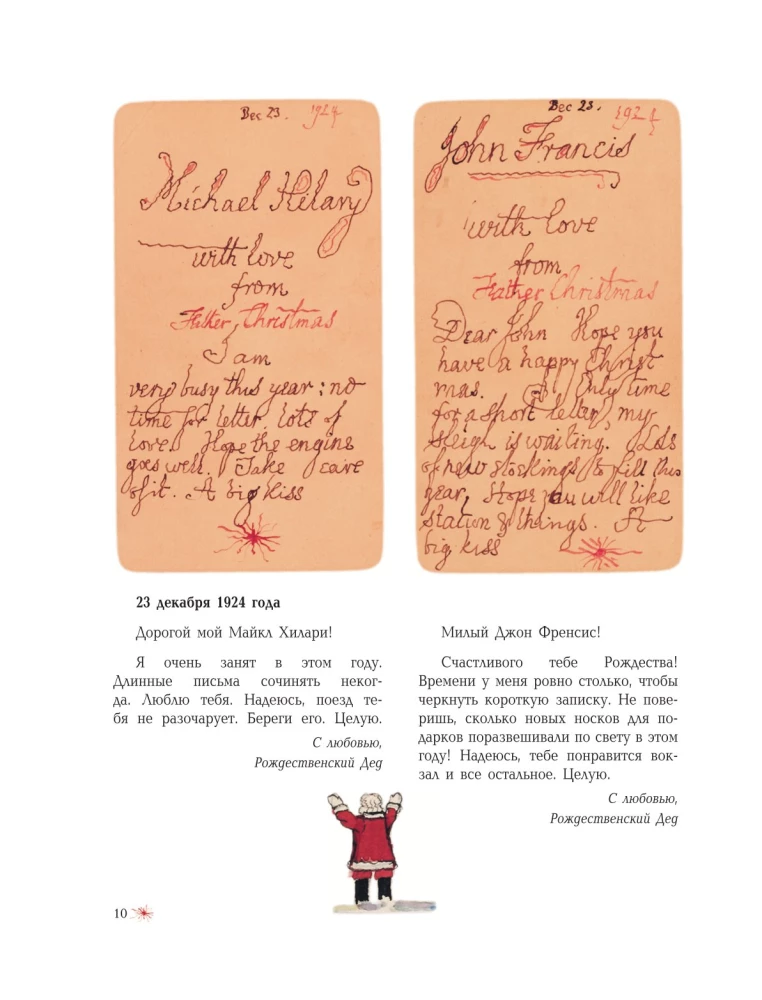 Dec 23. 1924
Michael Hilary
with love
from
Father Christmas
I am
very busy this year : no
time for letter. lots of
love. Hope the engine
goes well. Take care
of it. A big kiss
Dec 23. 1924
John Francis
with love
from
Father Christmas
Dear John Hope you
have a happy Christ
mas. Only time
for a short letter, my
sleigh is waiting. Lots
of new stockings to fill this
year, Hope you will like
station & things. A
big kiss
23 декабря 1924 года
Дорогой мой Майкл Хилари!
Я очень занят в этом году.
Длинные письма сочинять неког-
да. Люблю тебя. Надеюсь, поезд те-
бя не разочарует. Береги его. Целую.
С любовью,
Рождественский Дед
Милый Джон Френсис!
Счастливого тебе Рождества!
Времени у меня ровно столько, чтобы
черкнуть короткую записку. Не пове-
ришь, сколько новых носков для по-
дарков поразвешивали по свету в этом
году! Надеюсь, тебе понравится вок-
зал и все остальное. Целую.
С любовью,
Рождественский Дед
10